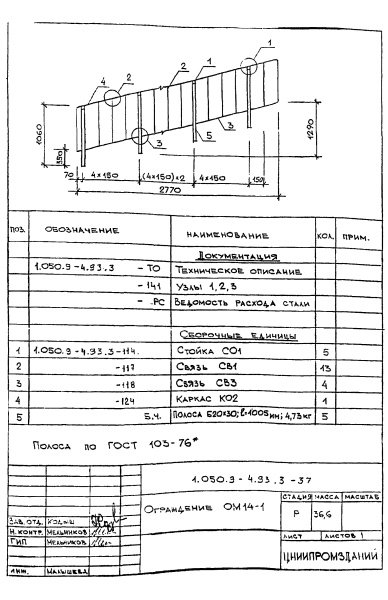 1
4
2
2
1
1060
350
3
5
3
1290
70
4×150
(4×150)×2
4×150
150
2770
ПОЗ. ОБОЗНАЧЕНИЕ НАИМЕНОВАНИЕ КОЛ. ПРИМ.
ДОКУМЕНТАЦИЯ
1.050.9-4.93.3 - ТО ТЕХНИЧЕСКОЕ ОПИСАНИЕ
- 141 УЗЛЫ 1,2,3
- РС ВЕДОМОСТЬ РАСХОДА СТАЛИ
СБОРОЧНЫЕ ЕДИНИЦЫ
1 1.050.9-4.93.3-114. СТОЙКА СО1 5
2 -117 СВЯЗЬ СВ1 13
3 -118 СВЯЗЬ СВ3 4
4 -124 КАРКАС КО2 1
5 Б.Ч. ПОЛОСА Б20×30; ℓ=1005мм; 4,73кг 5
ПОЛОСА ПО ГОСТ 103-76*
1.050.9-4.93.3-37
ОГРАЖДЕНИЕ ОМ14-1
СТАДИЯ МАССА МАСШТАБ
Р 36,6
ЗАВ. ОТД. КОДЫШ
Н. КОНТР. МЕЛЬНИКОВ
ГИП МЕЛЬНИКОВ
ЛИСТ ЛИСТОВ 1
ЦНИИПРОМЗДАНИЙ
ИНЖ. МАЛЫШЕВА